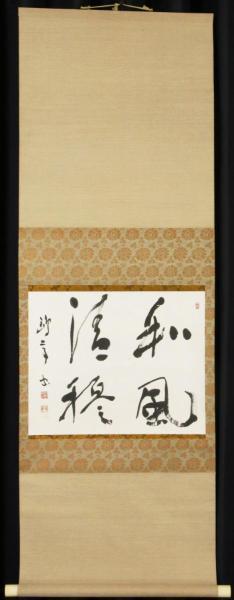 和風
清穆